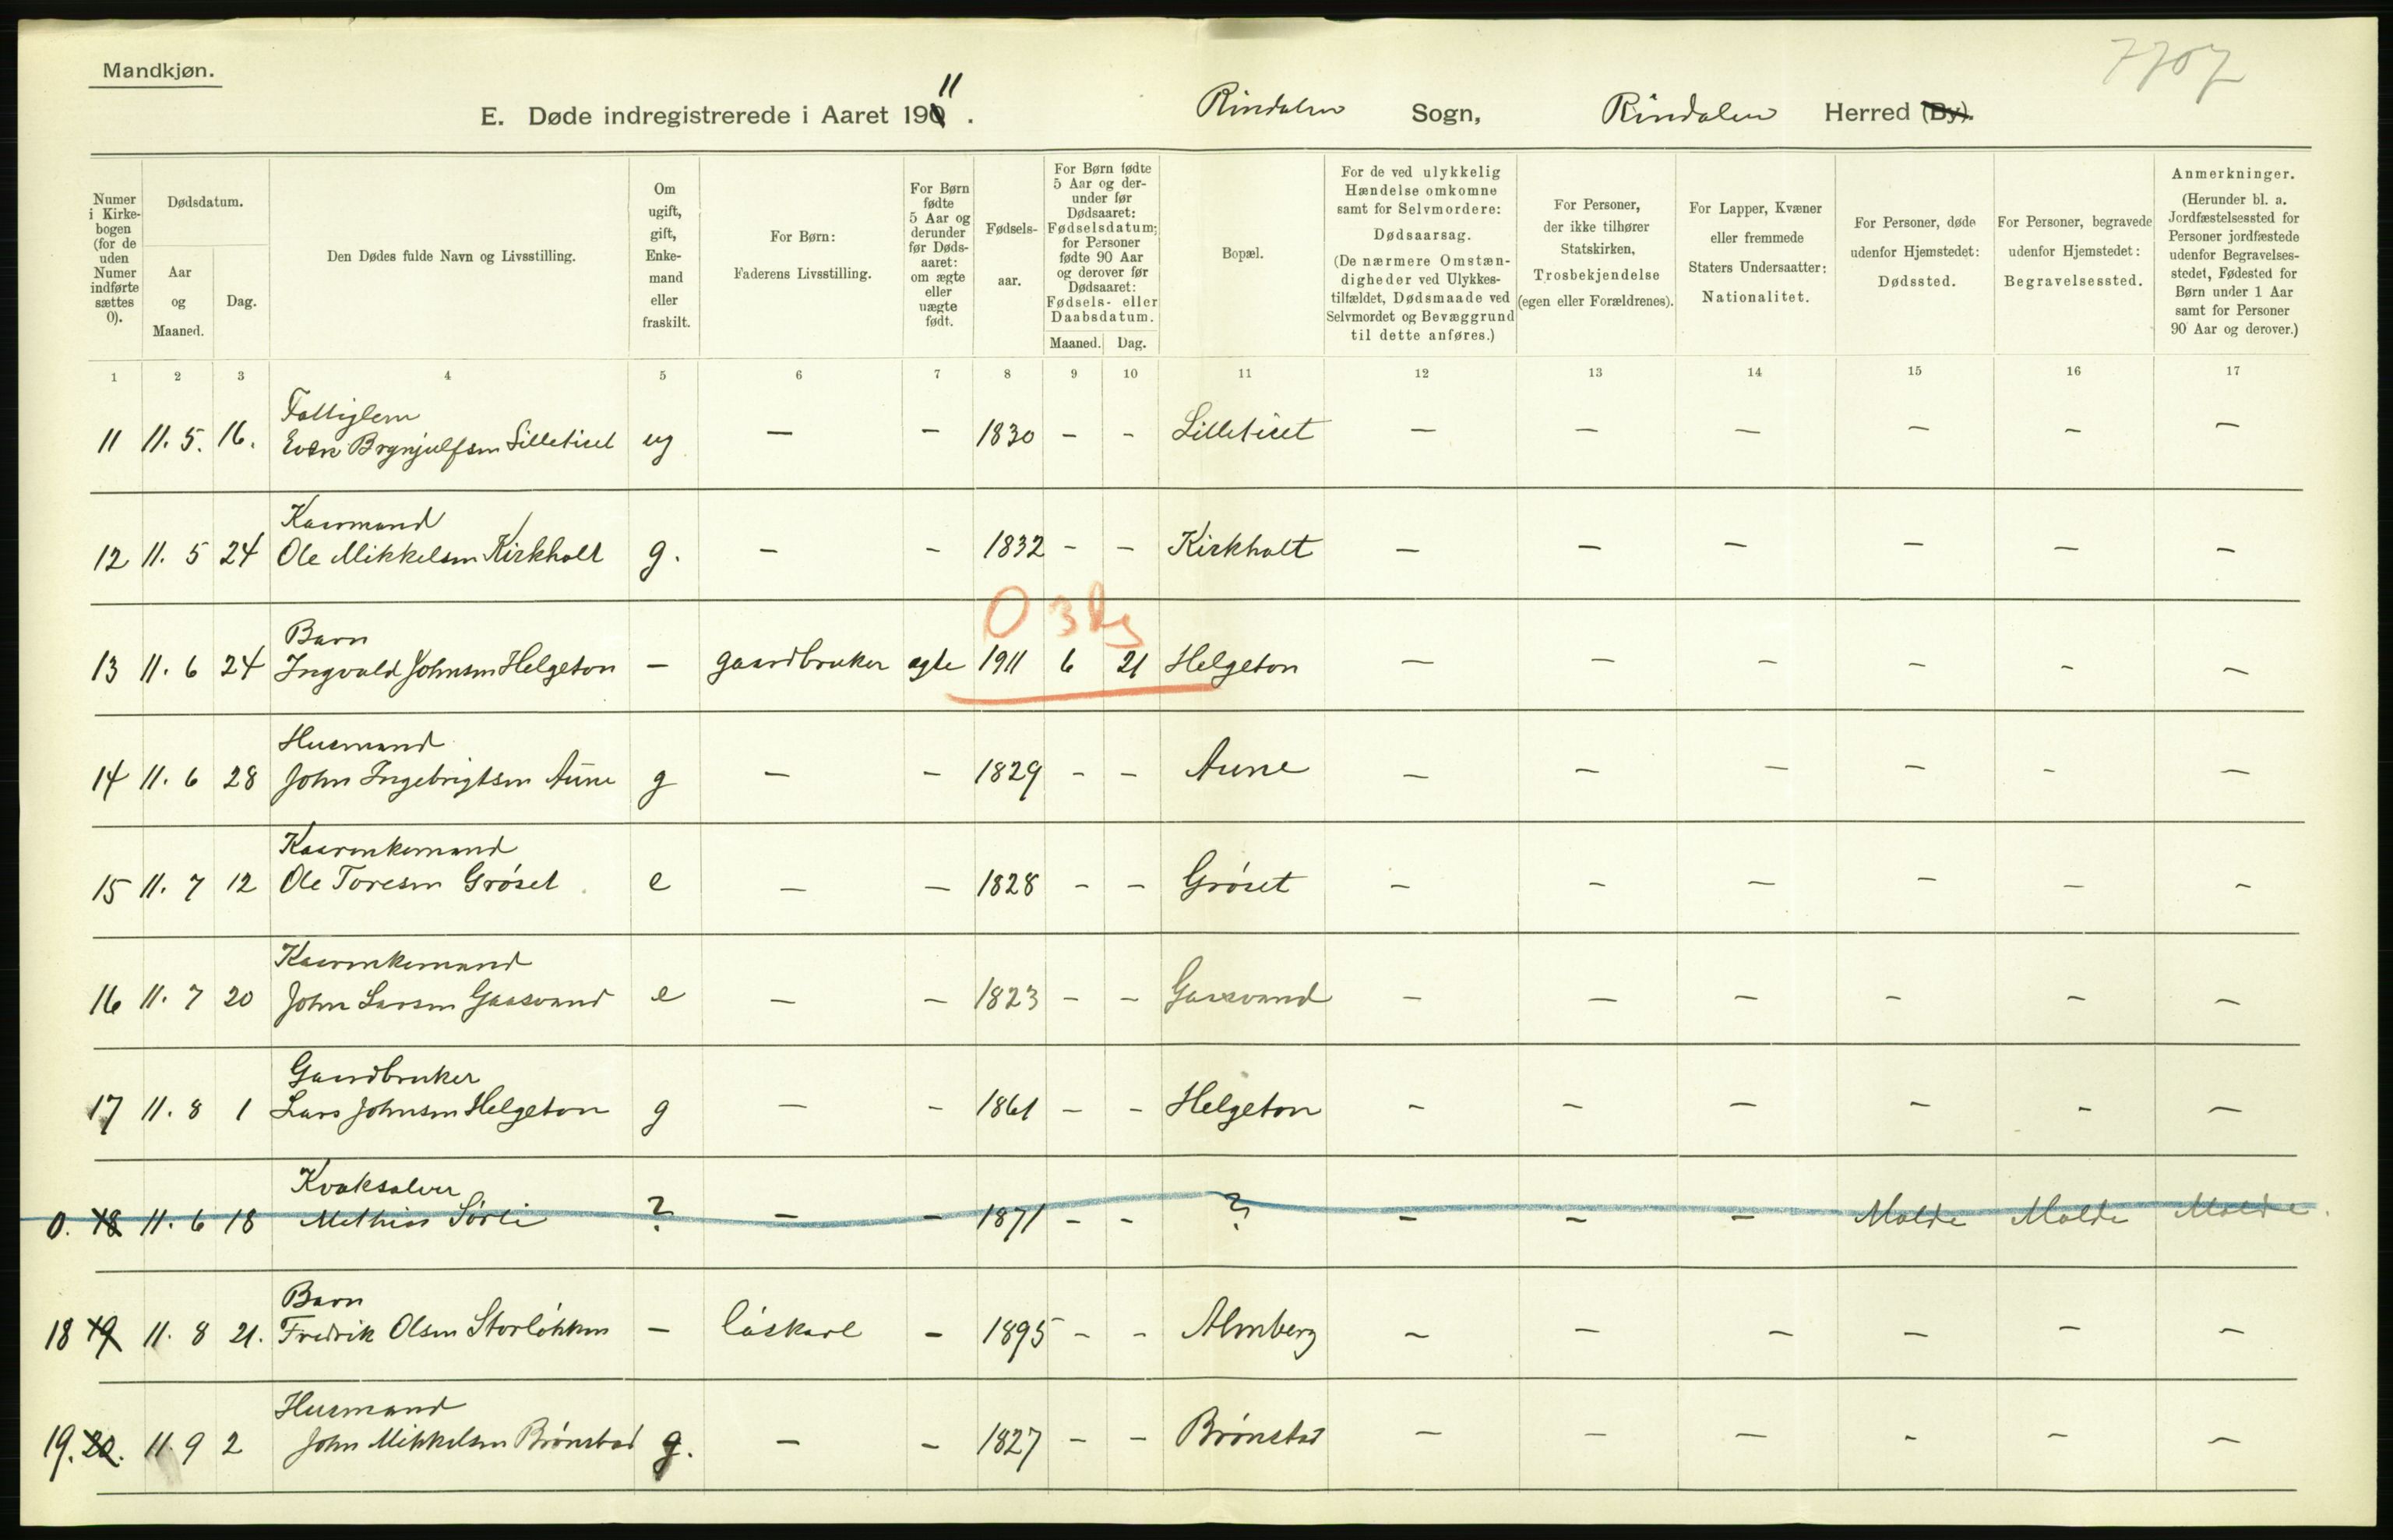 Mandkjøn.
7707
E. Døde indregistrerede i Aaret 1911.
Rindalen Sogn, Rindalen Herred (By).
Numer i Kirkebogen (for de uden Numer indførte sættes 0).
Dødsdatum.
Aar og Maaned.
Dag.
Den Dødes fulde Navn og Livsstilling.
Om ugift, gift, Enkemand eller fraskilt.
For Børn: Faderens Livsstilling.
For Børn fødte 5 Aar og derunder før Dødsaaret: om ægte eller uægte født.
Fødselsaar.
For Børn fødte 5 Aar og derunder før Dødsaaret: Fødselsdatum; for Personer fødte 90 Aar og derover før Dødsaaret: Fødsels- eller Daabsdatum.
Maaned. Dag.
Bopæl.
For de ved ulykkelig Hændelse omkomne samt for Selvmordere: Dødsaarsag. (De nærmere Omstændigheder ved Ulykkestilfældet, Dødsmaade ved Selvmordet og Bevæggrund til dette anføres.)
For Personer, der ikke tilhører Statskirken, Trosbekjendelse (egen eller Forældrenes).
For Lapper, Kvæner eller fremmede Staters Undersaatter: Nationalitet.
For Personer, døde udenfor Hjemstedet: Dødssted.
For Personer, begravede udenfor Hjemstedet: Begravelsessted.
Anmerkninger. (Herunder bl. a. Jordfæstelsessted for Personer jordfæstede udenfor Begravelsesstedet, Fødested for Børn under 1 Aar samt for Personer 90 Aar og derover.)
1 2 3 4 5 6 7 8 9 10 11 12 13 14 15 16 17
Fattiglem
11 11. 5. 16. Even Brynjulfsen Lilletiset ug — – 1830 – – Lilletiset — — — — — —
Kaarmand
12 11. 5 24 Ole Mikkelsen Kirkholt g. — – 1832 – – Kirkholt — — — — — —
0 3 Dg
Barn
13 11. 6 24 Ingvald Johnsen Helgeton — gaardbruker egte 1911 6 21 Helgeton — — — — — —
Husmand
14 11. 6 28 John Ingebrigtsen Aune g — – 1829 – – Aune — — — — — —
Kaarenkemand
15 11. 7 12 Ole Toresen Grøset e — — 1828 – – Grøset — — — — — —
Kaarenkemand
16 11. 7 20 John Larsen Gaasvand e — – 1823 – – Gaasvand — — — — — —
Gaardbruker
17 11. 8 1 Lars Johnsen Helgeton g — – 1861 – – Helgeton — — — — — —
Kvaksalver
0. 18 11. 6 18 Mathias Sørli ? — – 1871 – – ? — — — Molde Molde Molde.
Barn
18 19 11. 8 21. Fredrik Olsen Storløkken — løskarl – 1895 – – Almberg — — — — — —
Husmand
19. 20. 11. 9 2 John Mikkelsen Brønstad g. — – 1827 – – Brønstad — — — — — —